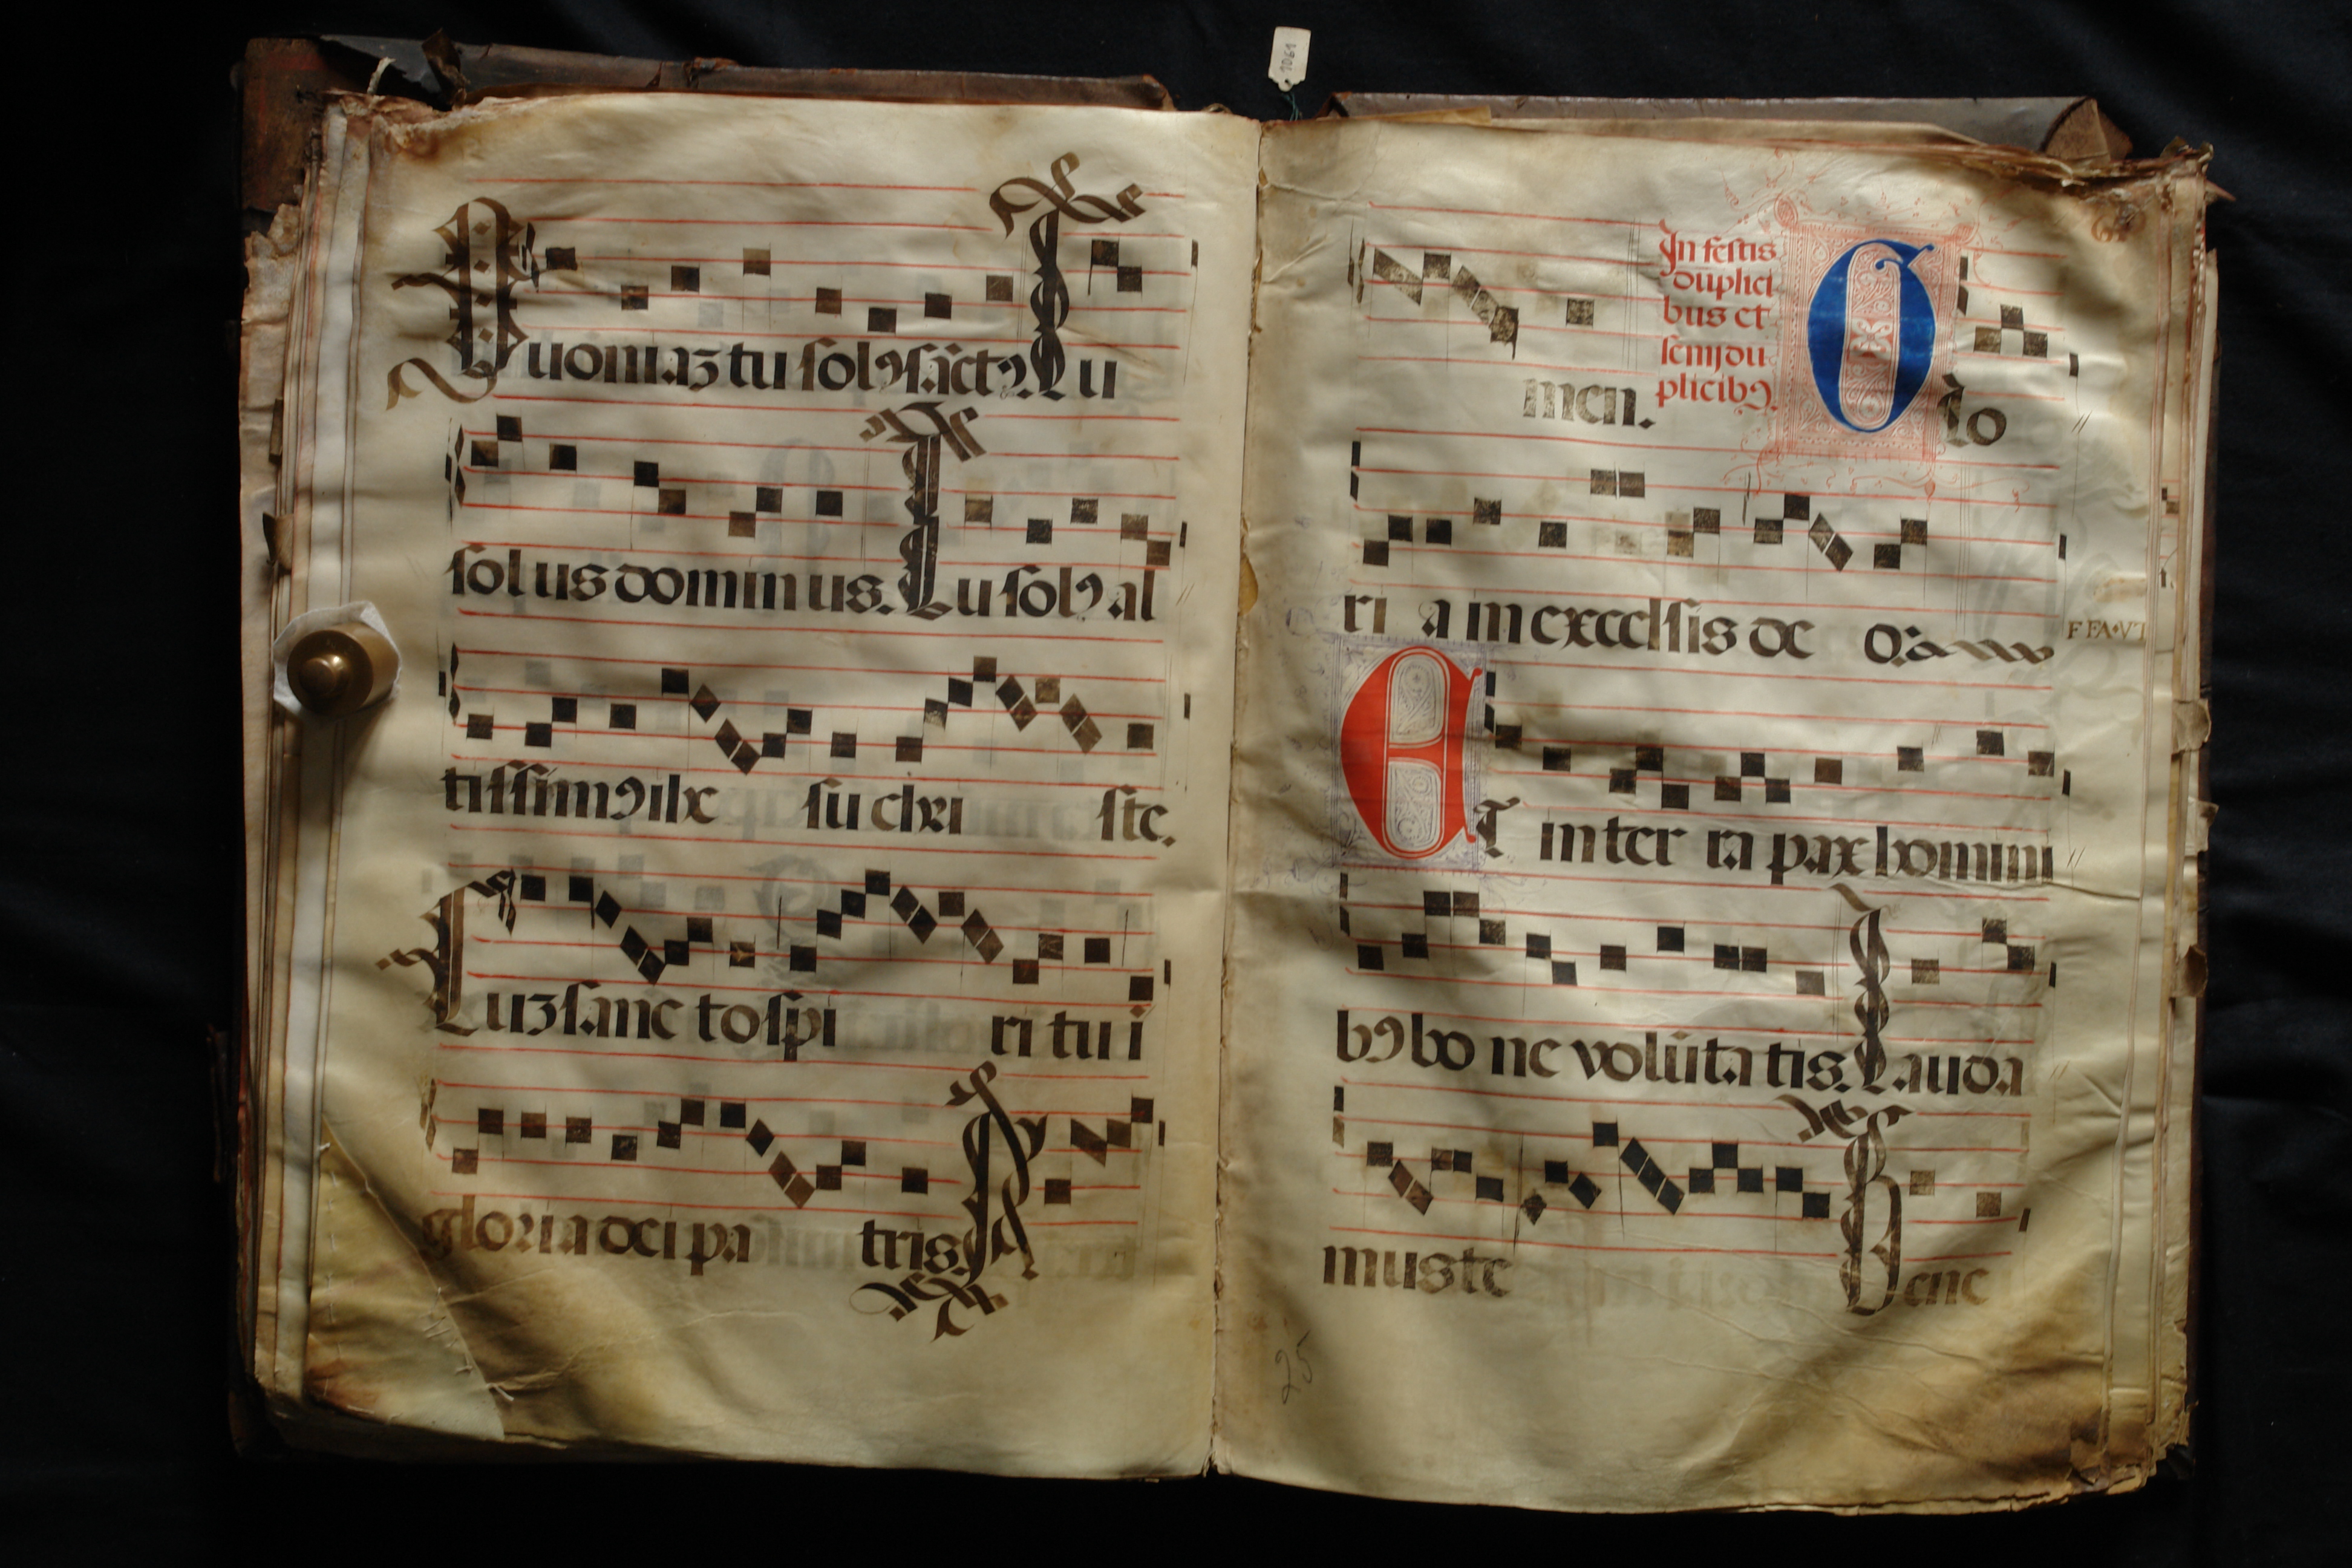 Quoniaz tu solꝰ sāctꝰ. Tu
solus dominus. Tu solꝰ al
tissimꝰ ihe su chri ste.
Cuz sanc to spi ri tu i
gloria dei pa tris. A
men. In festis
duplici
bus et
semidu
plicibꝰ.
Glo
ri a in excelsis de o.
F FA•VT
ET in ter ra pax homini
bꝰ bo ne volūta tis. Lauda
mus te Bene
25
1061